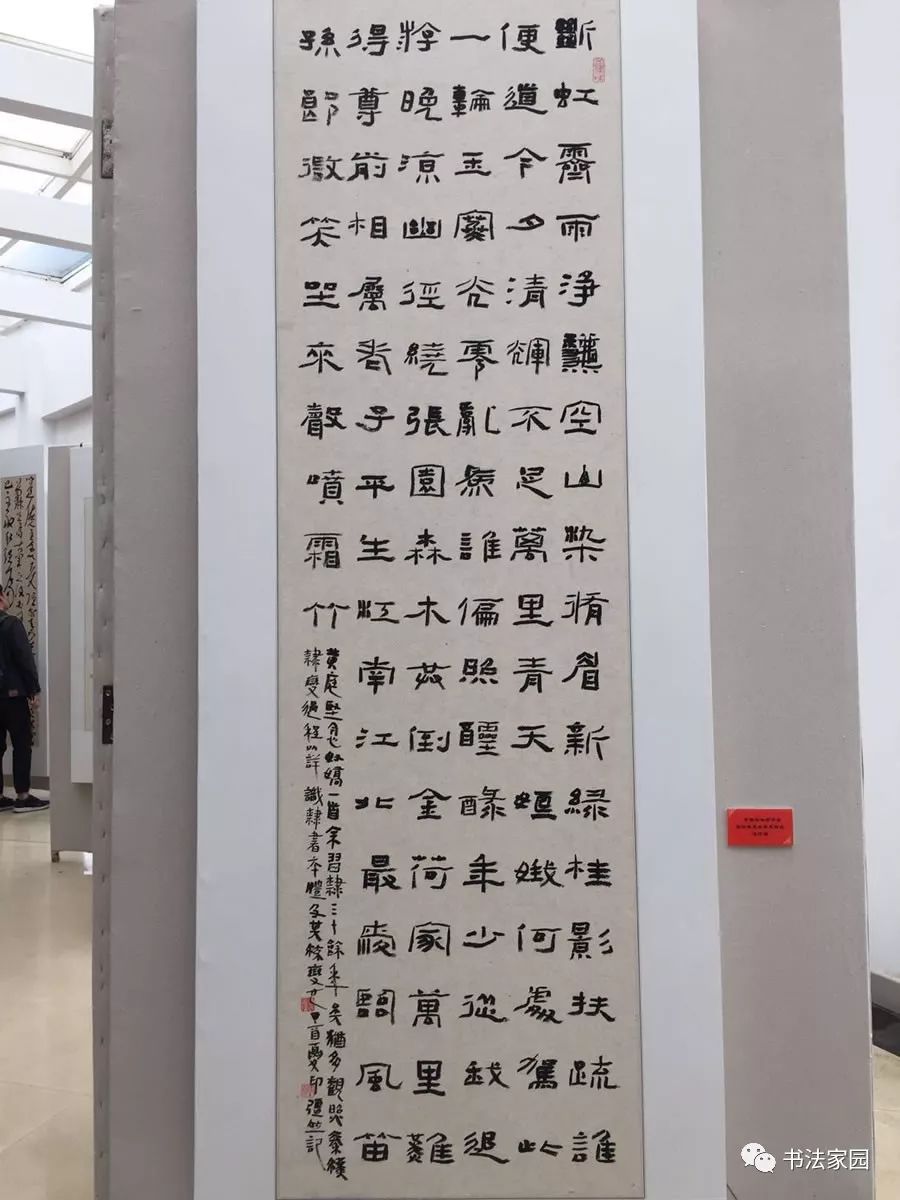 斷虹霽雨淨龝空山染脩眉新綠桂影扶疏誰
便道今夕清輝不足萬里青天姮娥何處駕此
一輪玉寒光零亂為誰偏照醽醁年少從我追
游晚涼幽徑繞張園森木共倒金荷家萬里難
得尊前相屬老子平生江南江北最愛臨風笛
孫郎微笑坐來聲噴霜竹
黃庭堅念奴嬌一首余習隸三十餘年矣猶多觀照秦漢
隸變過程以詳識隸書本體及其丁酉夏印彊記
书法家园